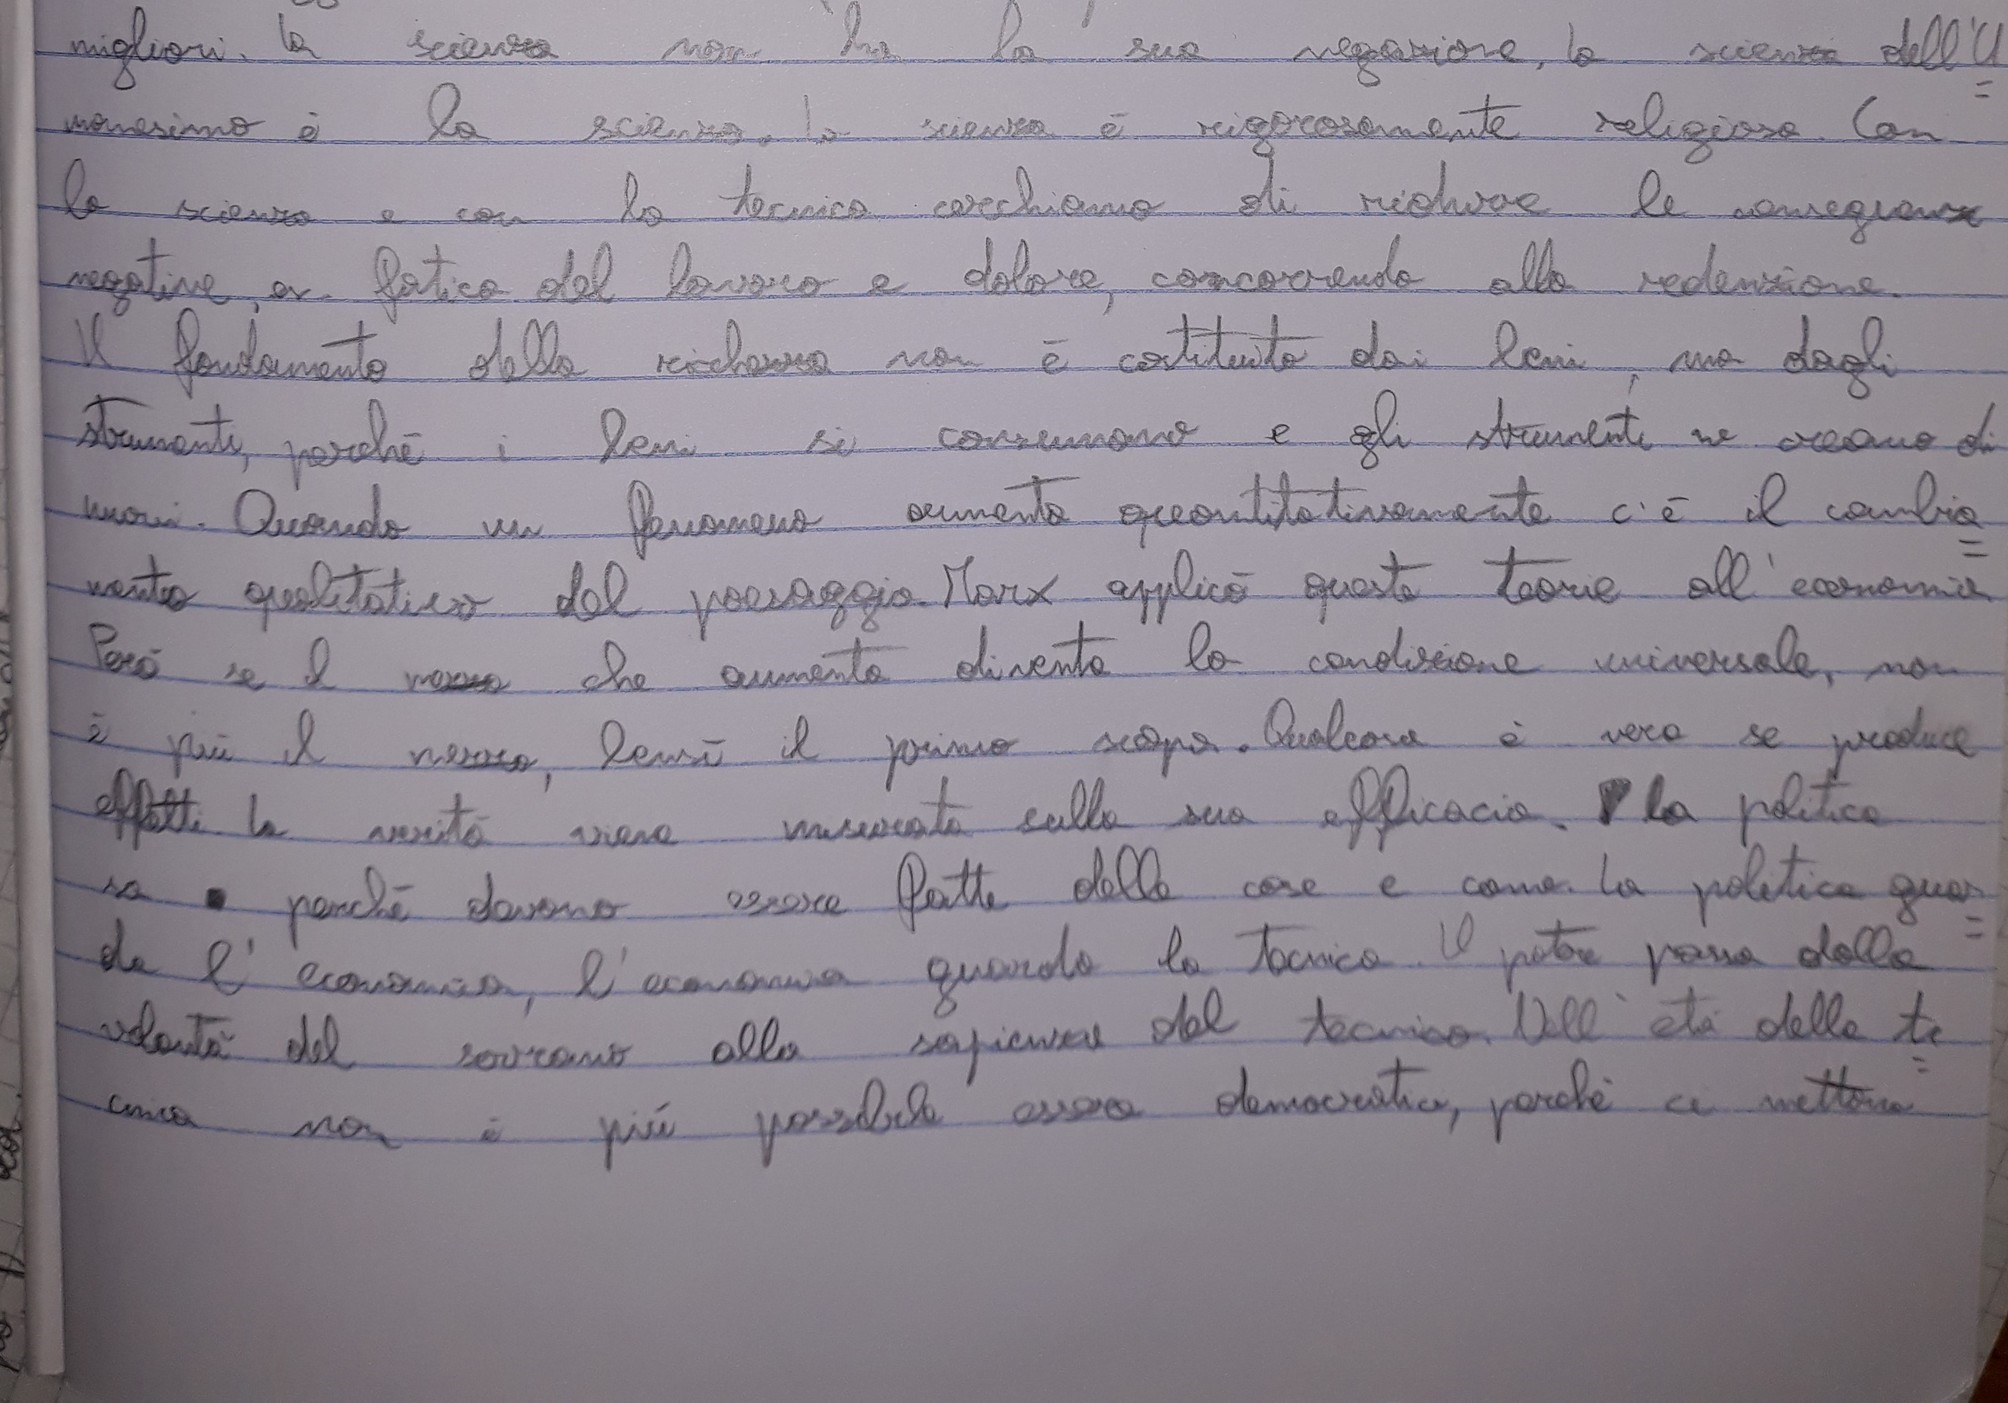 migliori. la scienza non ha la sua negazione, la scienza dell'U=
manesimo è la scienza. la scienza è rigorosamente religiosa. Con
la scienza e con la tecnica cerchiamo di ridurre le conseguenze
negative, fatica del lavoro e dolore, concorrendo alla redenzione.
Il fondamento della ricchezza non è costituito dai beni, ma dagli
strumenti, perché i beni si consumano e gli strumenti ne creano di
nuovi. Quando un fenomeno aumenta quantitativamente c'è il cambia=
mento qualitativo del paesaggio. Marx applicò queste teorie all'economia.
Però se il mezzo che aumenta diventa la condizione universale, non
è più il mezzo, bensì il primo scopo. Qualcosa è vera se produce
effetti. la verità viene misurata sulla sua efficacia. la politica
sa perché devono essere fatte delle cose e come. la politica guar=
da l'economia, l'economia guarda la tecnica. Il potere passa dalla
volontà del sovrano alla sapienza del tecnico. Nell'età della te=
cnica non è più possibile essere democratici, perché ci mettono